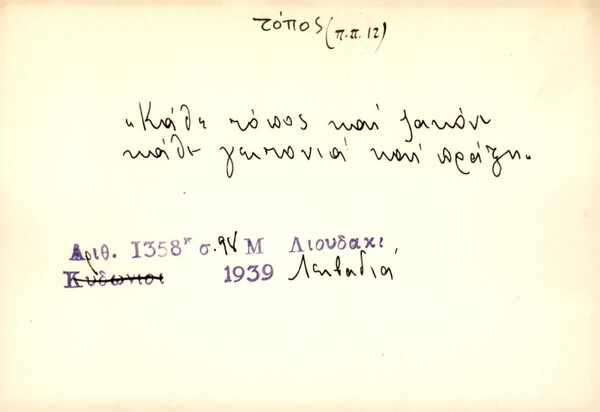 τόπος (π.π. 12)
"Κάθε τόπος καί ζακόνι
κάθε γειτονιά καί πράξη"
Αριθ. 1358 σ. 98 Μ Λιουδακι
Κυδωνισι 1939 Λειβαδιά